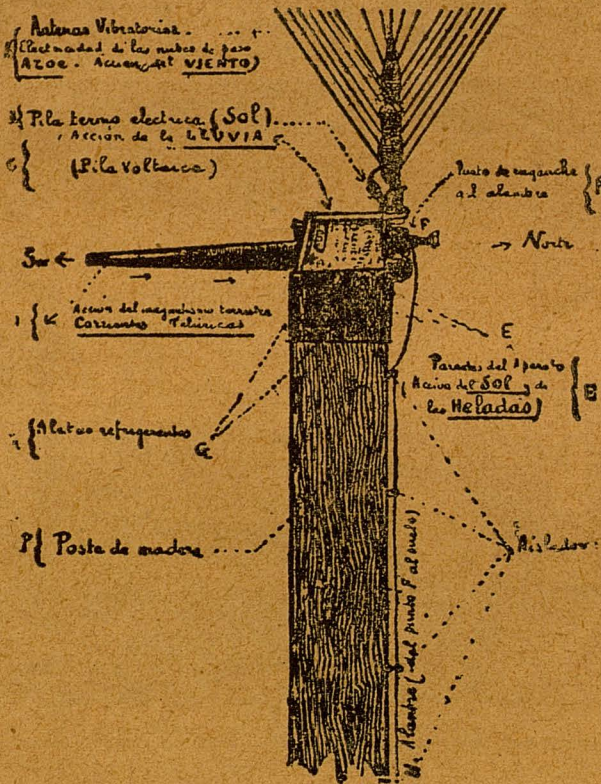 Antenas Vibratorias
Electricidad de las nubes de paso
AZOE - Accion del VIENTO)
Pila termo electrica (Sol)
Acción de la LLUVIA
(Pila Voltaica)
Punto de enganche
al alambre
F
Sur ←
→ Norte
K
Accion del magnetismo terrestre
Corrientes Telúricas
E
Paredes del Aparato
(Accion del SOL y de
las Heladas)
E
Aletas refrigerentes
G
P{ Poste de madera
Aislador
Alambre (del punto F al suelo)